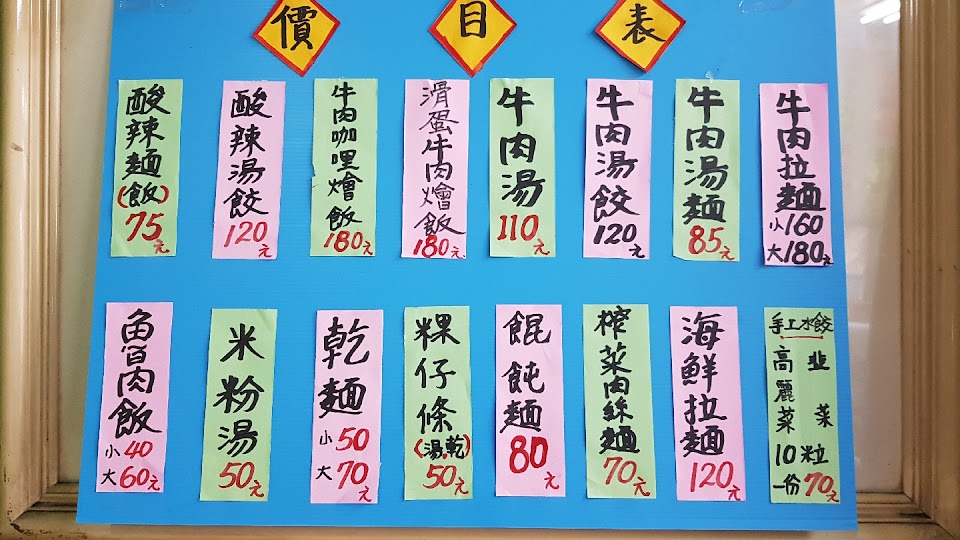 價目表
牛肉拉麵
小160
大180元
牛肉湯麵
85元
牛肉湯餃
120元
牛肉湯
110元
滑蛋牛肉燴飯
180元
牛肉咖哩燴飯
180元
酸辣湯餃
120元
酸辣麵
(飯)
75元
手工水餃
韭菜
高麗菜
10粒
一份70元
海鮮拉麵
120元
榨菜肉絲麵
70元
餛飩麵
80
粿仔條
(湯.乾)
50元
乾麵
小50
大70元
米粉湯
50元
魯肉飯
小40
大60元